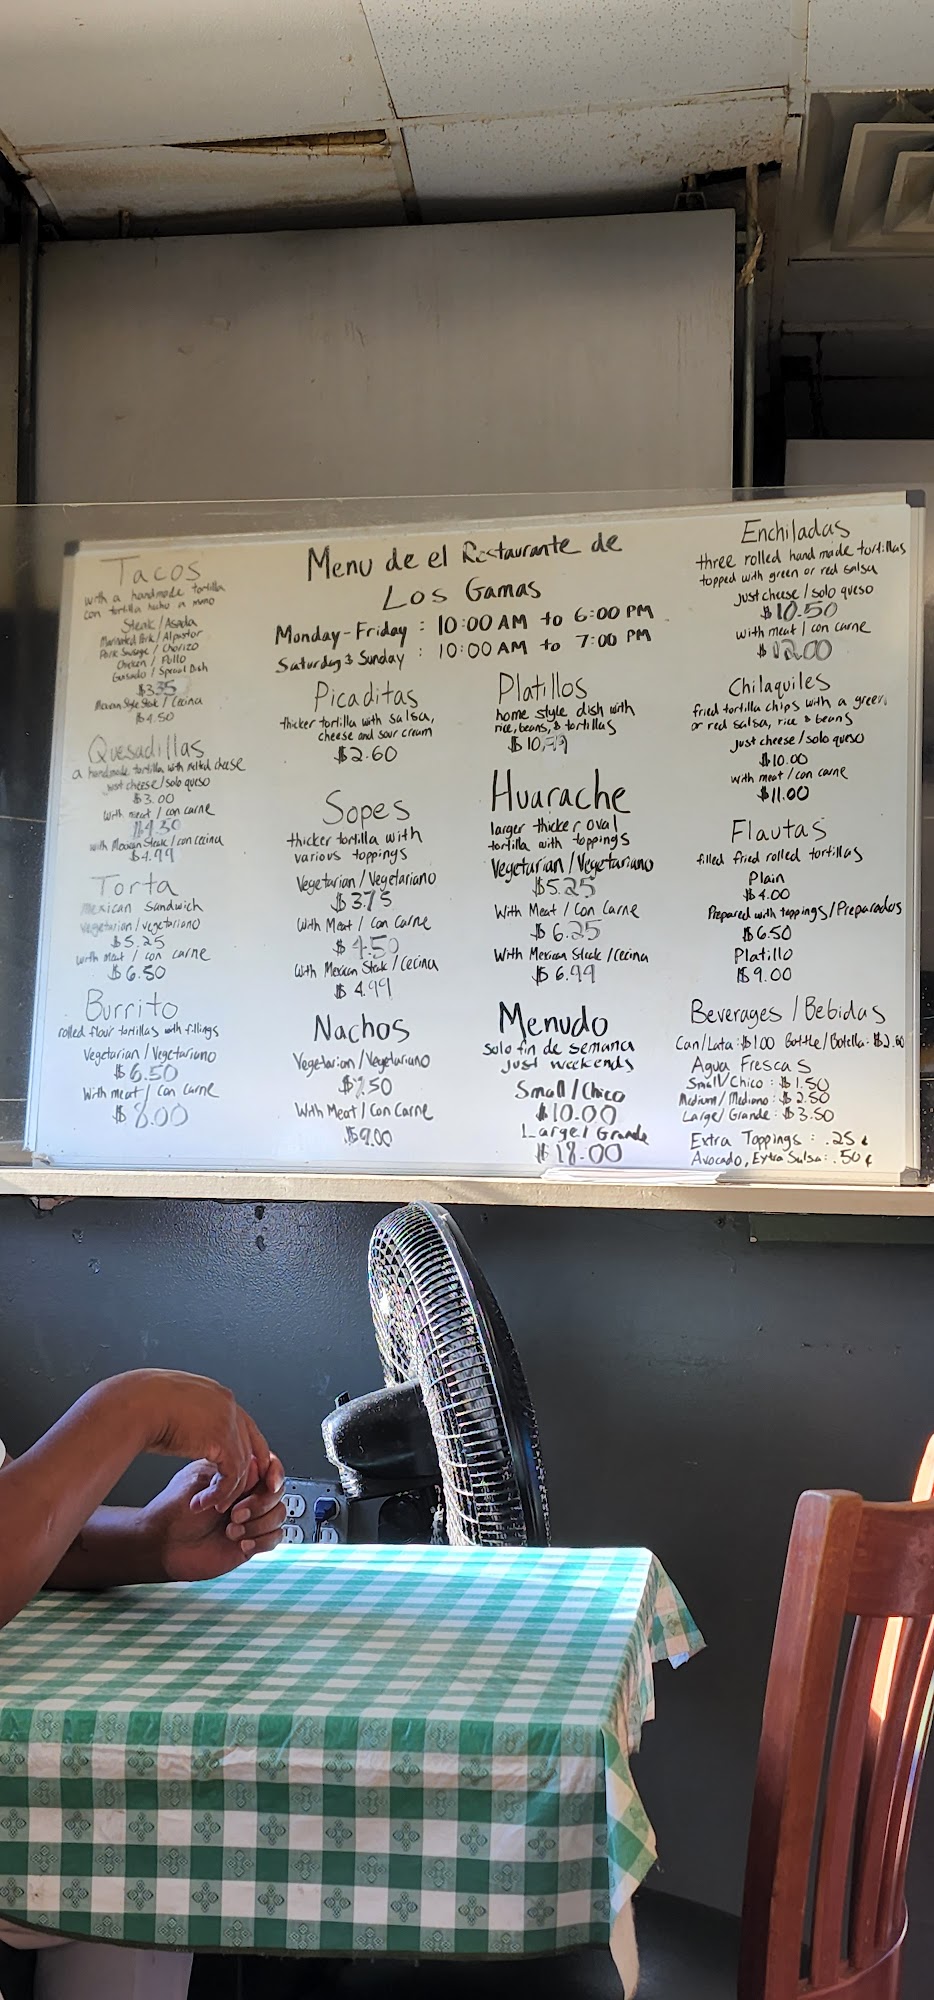 Menu de el Restaurante de
Los Gamas
Monday-Friday : 10:00 AM to 6:00 PM
Saturday & Sunday : 10:00 AM to 7:00 PM
Tacos
with a handmade tortilla
con tortilla hecho a mano
Steak / Asada
Marinated Pork / Al pastor
Pork Sausage / Chorizo
Chicken / Pollo
Guisado / Special Dish
$3.35
Mexican Style Steak / Cecina
$4.50
Quesadillas
a handmade tortilla with melted cheese
just cheese / solo queso
$3.00
with meat / con carne
$4.50
with Mexican Steak / con cecina
$4.99
Torta
Mexican Sandwich
vegetarian / vegetariano
$5.25
with meat / con carne
$6.50
Burrito
rolled flour tortillas with fillings
Vegetarian / Vegetariano
$6.50
With meat / Con Carne
$8.00
Picaditas
thicker tortilla with salsa,
cheese and sour cream
$2.60
Sopes
thicker tortilla with
various toppings
Vegetarian / Vegetariano
$3.75
With Meat / Con Carne
$4.50
With Mexican Steak / Cecina
$4.99
Nachos
Vegetarian / Vegetariano
.50
With Meat / Con Carne
$9.00
Platillos
home style dish with
rice, beans, & tortillas
$10.99
Huarache
larger thicker oval
tortilla with toppings
Vegetarian / Vegetariano
$5.25
With Meat / Con Carne
$6.25
With Mexican Steak / Cecina
$6.99
Menudo
Solo fin de semana
just weekends
Small / Chico
$10.00
Large / Grande
$18.00
Enchiladas
three rolled hand made tortillas
topped with green or red salsa
just cheese / solo queso
$10.50
with meat / con carne
$12.00
Chilaquiles
fried tortilla chips with a green
or red salsa, rice & beans
just cheese / solo queso
$10.00
with meat / con carne
$11.00
Flautas
filled fried rolled tortillas
Plain
$4.00
Prepared with toppings / Preparados
$6.50
Platillo
$9.00
Beverages / Bebidas
Can / Lata : $1.00 Bottle / Botella - $2.60
Agua Frescas
Small / Chico : $1.50
Medium / Mediano : $2.50
Large / Grande : $3.50
Extra Toppings : .25¢
Avocado, Extra Salsa : .50¢